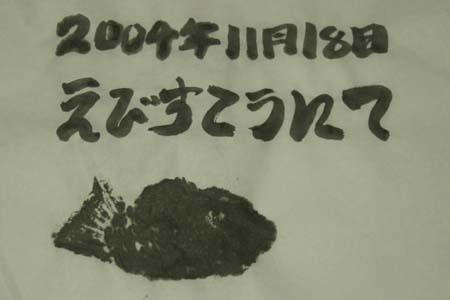 2004年11月18日
えびすこうにて